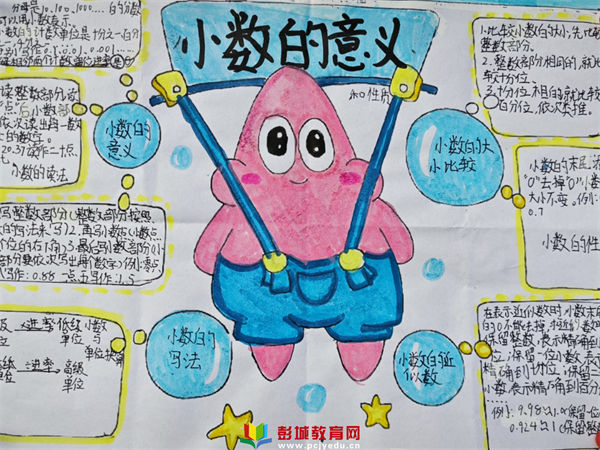 小数的意义
和性质
分母是10、100、1000……的分数
可以用小数表示。
小数的计数单位是十分之一百分
0.1、0.01、0.001……
小数的
意义
读整数部分
小数部
依次读出每一数
的数字。
20.37读作二十点
小数的读法
写整数部分(整数部分按照
的写法来写)2.再写小数点
个位的右下角)3.最后写小数部分(小
部分要依次写出每个数字)例:零
写作:0.88 一点五写作:1.5
进率 低级 小数
单位 与
单位换算
进率 高级
单位
小数的
写法
小数的大
小比较
1.比较小数的大小,先比较
整数部分。
2.整数部分相同的,就比
较十分位。
3.十分位相同的就比较
百分位,依次类推。
小数的末尾添
"0"去掉"0"小数
大小不变。例:
0.7
小数的性
小数的近
似数
在表示近似数时,小数末
的0不能去掉。求近似数
保留整数,表示精确到
位;保留一位小数,表示
精确到十分位;保留二
小数,表示精确到百分
例:9.98≈1.0(保留一位
0.924≈1(保留整
彭城教育网
www.pcjyedu.cn